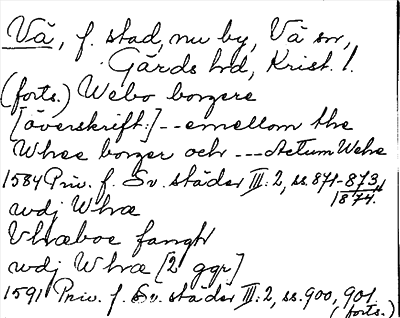 Vä, f. stad, nu by, Vä sn,
Gärds hd, Krist. l.
(forts.) Webo borgere
[överskrift:] -- emellom the
Whee borger och --- Actum Wehe
1584 Priv. f. Sv. städer III:2, ss. 871-873,
1874.
wdj Whæ
Vhæboe fangh
wdj Whæ [2 ggr]
1591 Priv. f. Sv. städer III:2, ss. 900, 901
(forts.)